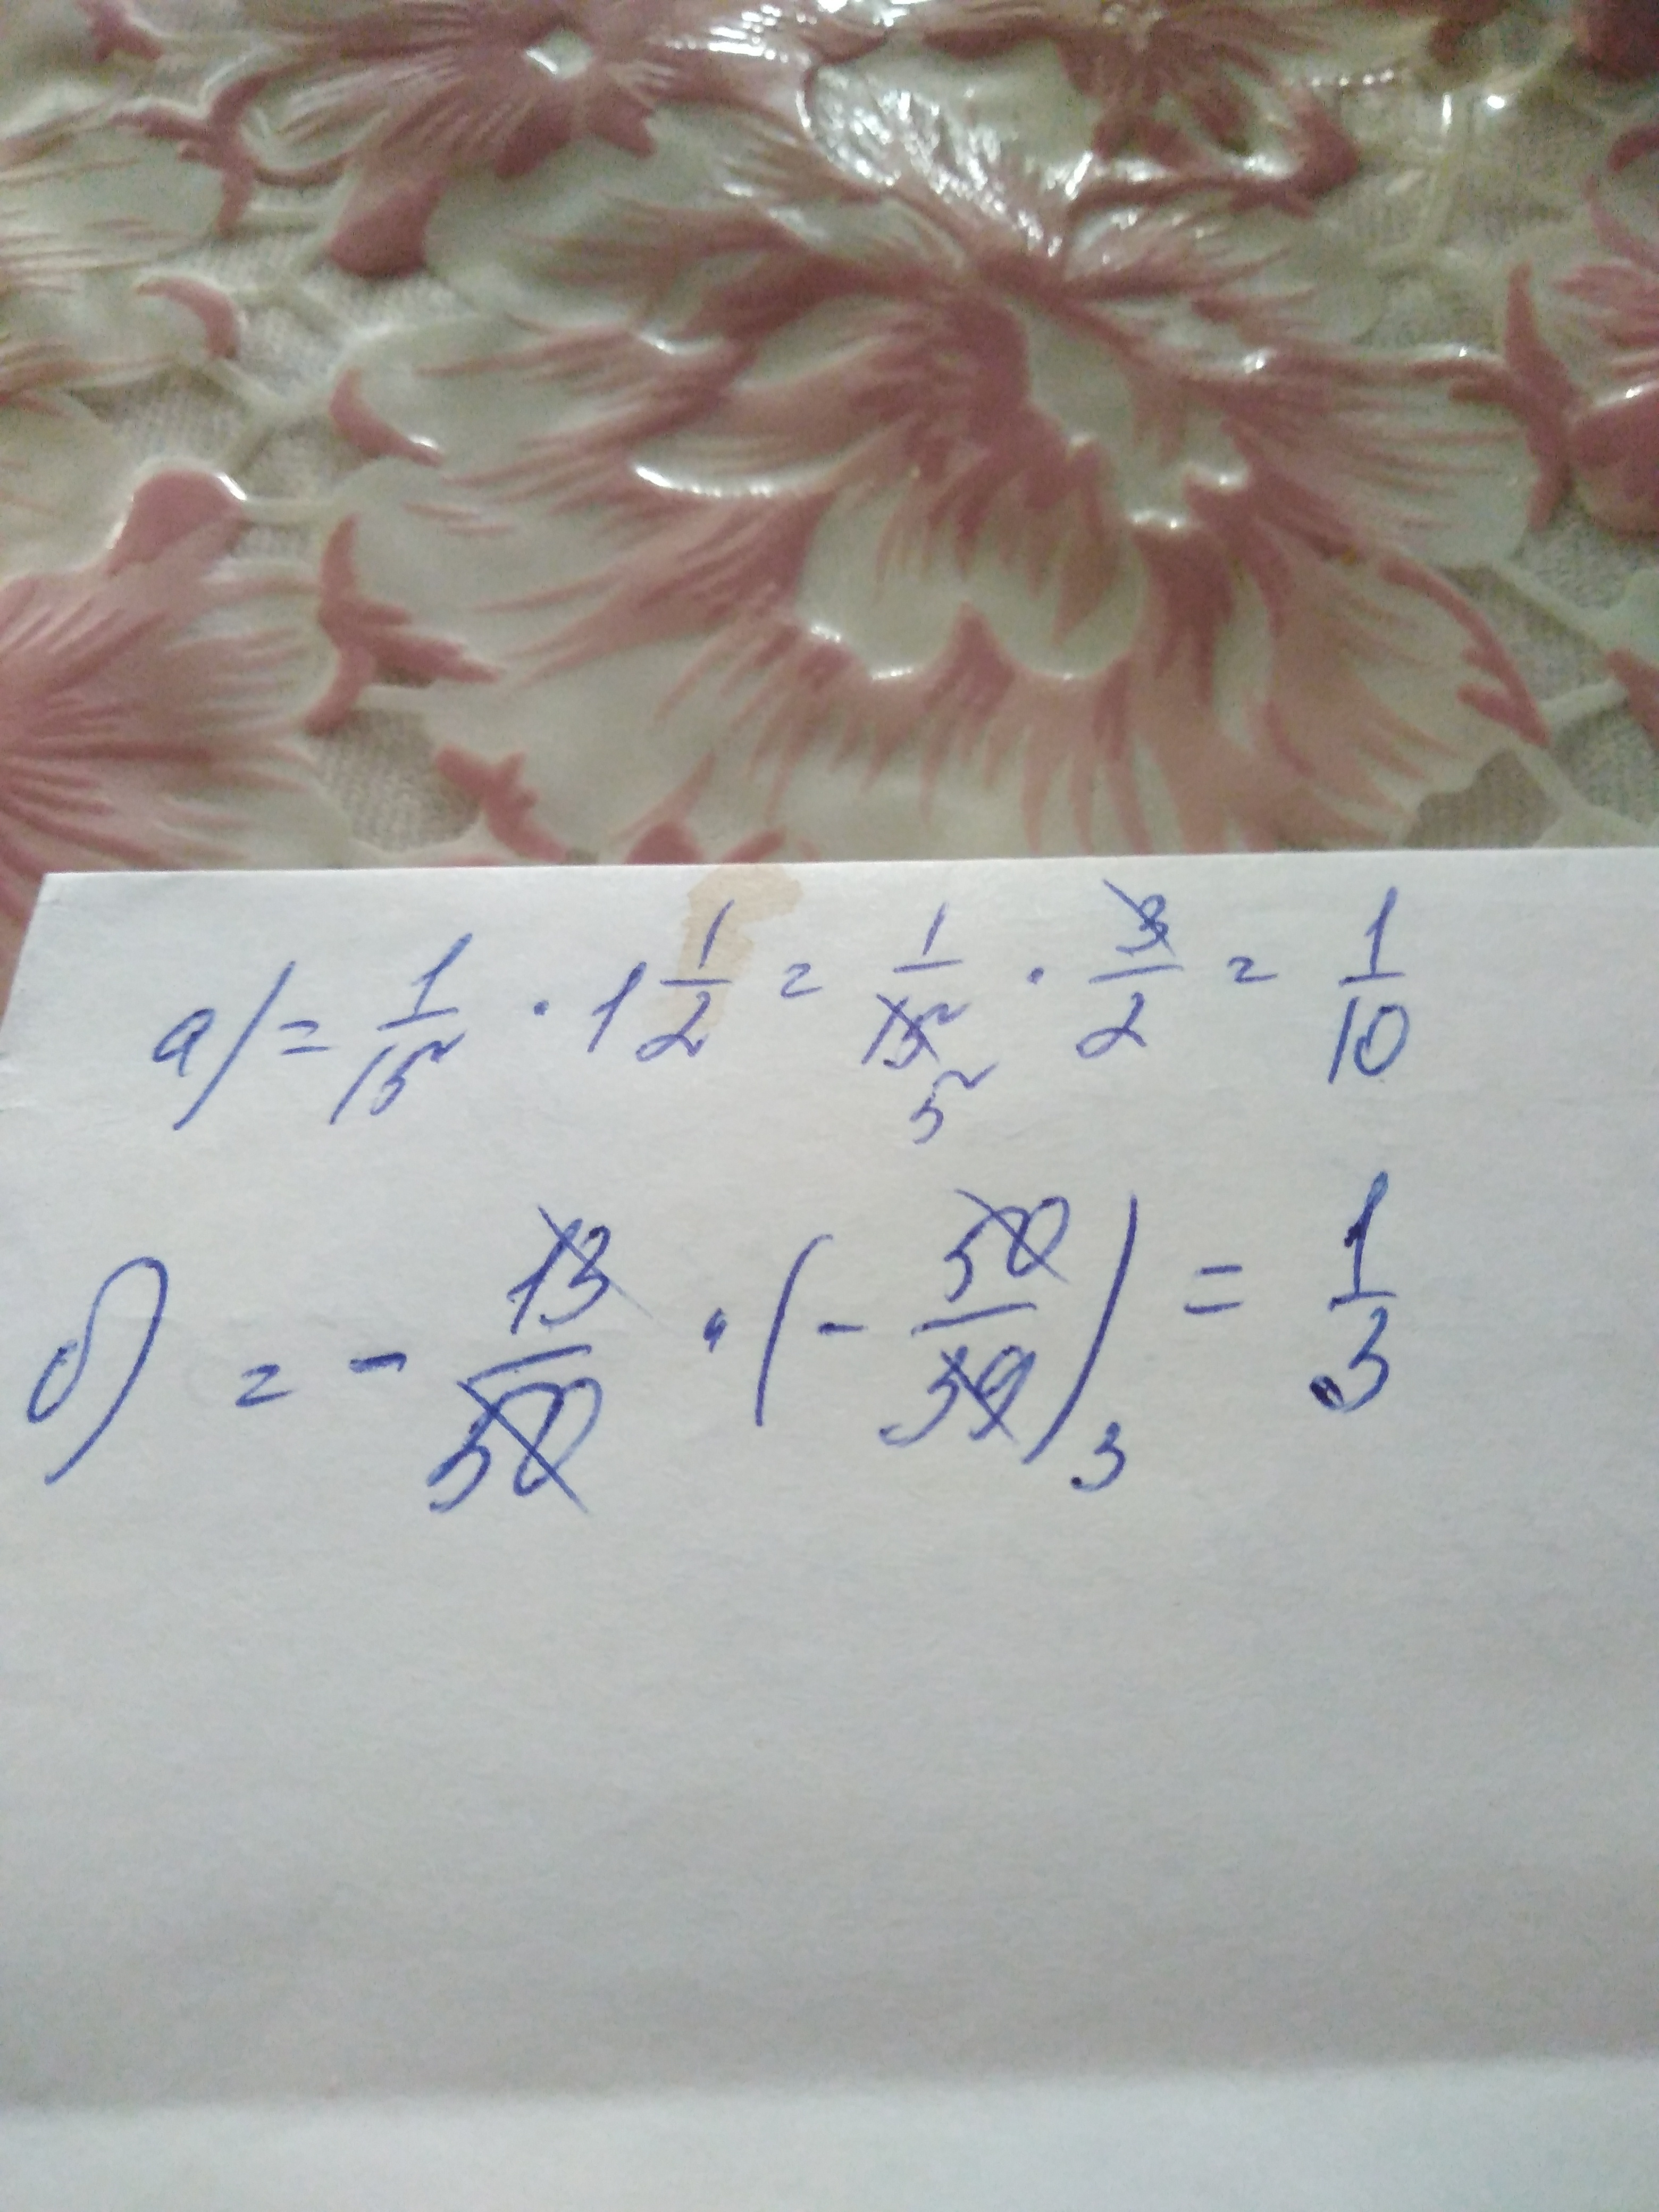 а) = 1/15 · 1 1/2 = 1/15 5 · 3/2 = 1/10
б) = - 13/50 · (- 50/39) 3 = 1/3